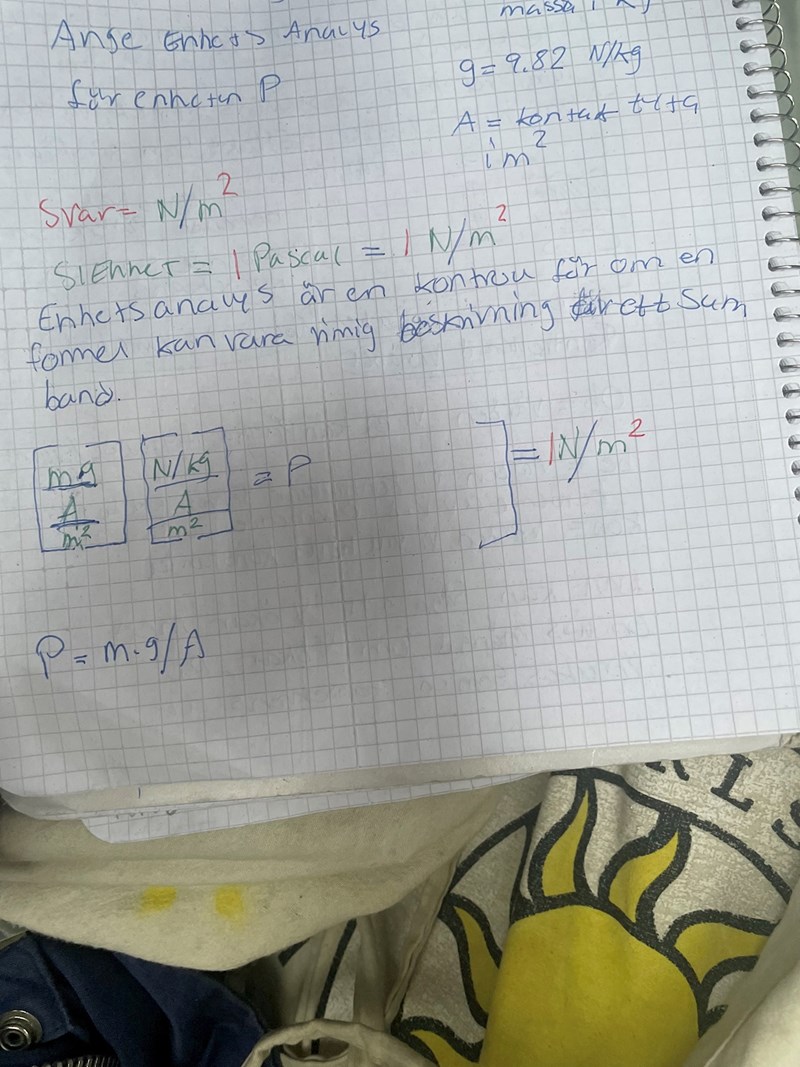 massa i kg
Ange Enhets Analys
för enheten P
g = 9.82 N/kg
A = kontakt
i m²
Svar = N/m²
SI Enhet = 1 Pascal = 1 N/m²
Enhetsanalys är en kontroll för om en
formel kan vara rimig beskrivning för ett Sam
band.
mg
A
m²
N/kg
A
m²
= P
] = 1N/m²
P = m·g/A